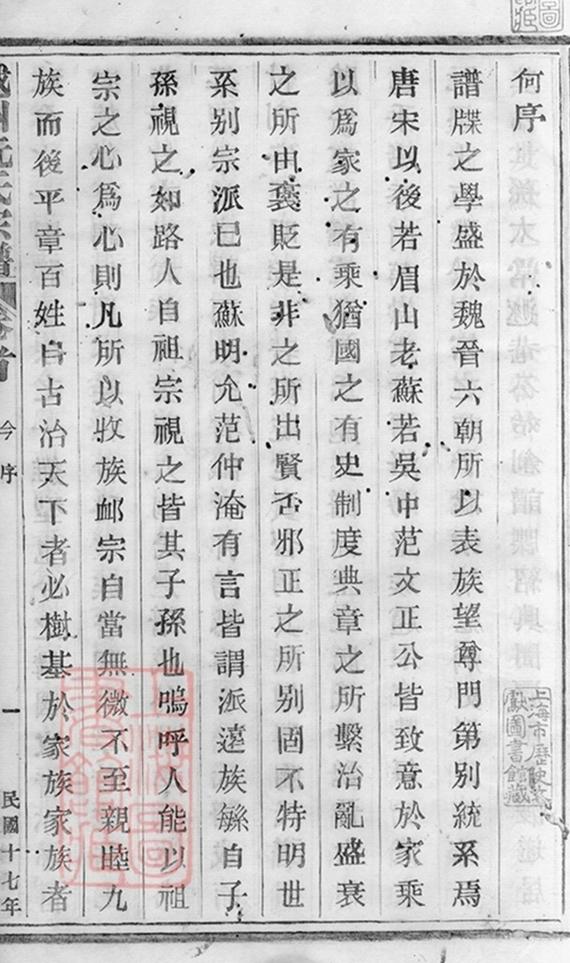 何序
譜牒之學盛於魏晉六朝所以表族望尊門第别統系焉
唐宋以後若眉山老蘇若吳中范文正公皆致意於家乘
以爲家之有乘猶國之有史制度典章之所繫治亂盛衰
之所由褒貶是非之所出賢否邪正之所别固不特明世
系别宗派已也蘇明允范仲淹有言皆謂派遠族繇自子
孫視之如路人自祖宗視之皆其子孫也嗚呼人能以祖
宗之心爲心則凡所以收族卹宗自當無微不至親睦九
族而後平章百姓自古治天下者必樹基於家族家族者
氏宗譜
首
今序
一
民國十七年
上海市歷史文獻圖書館藏